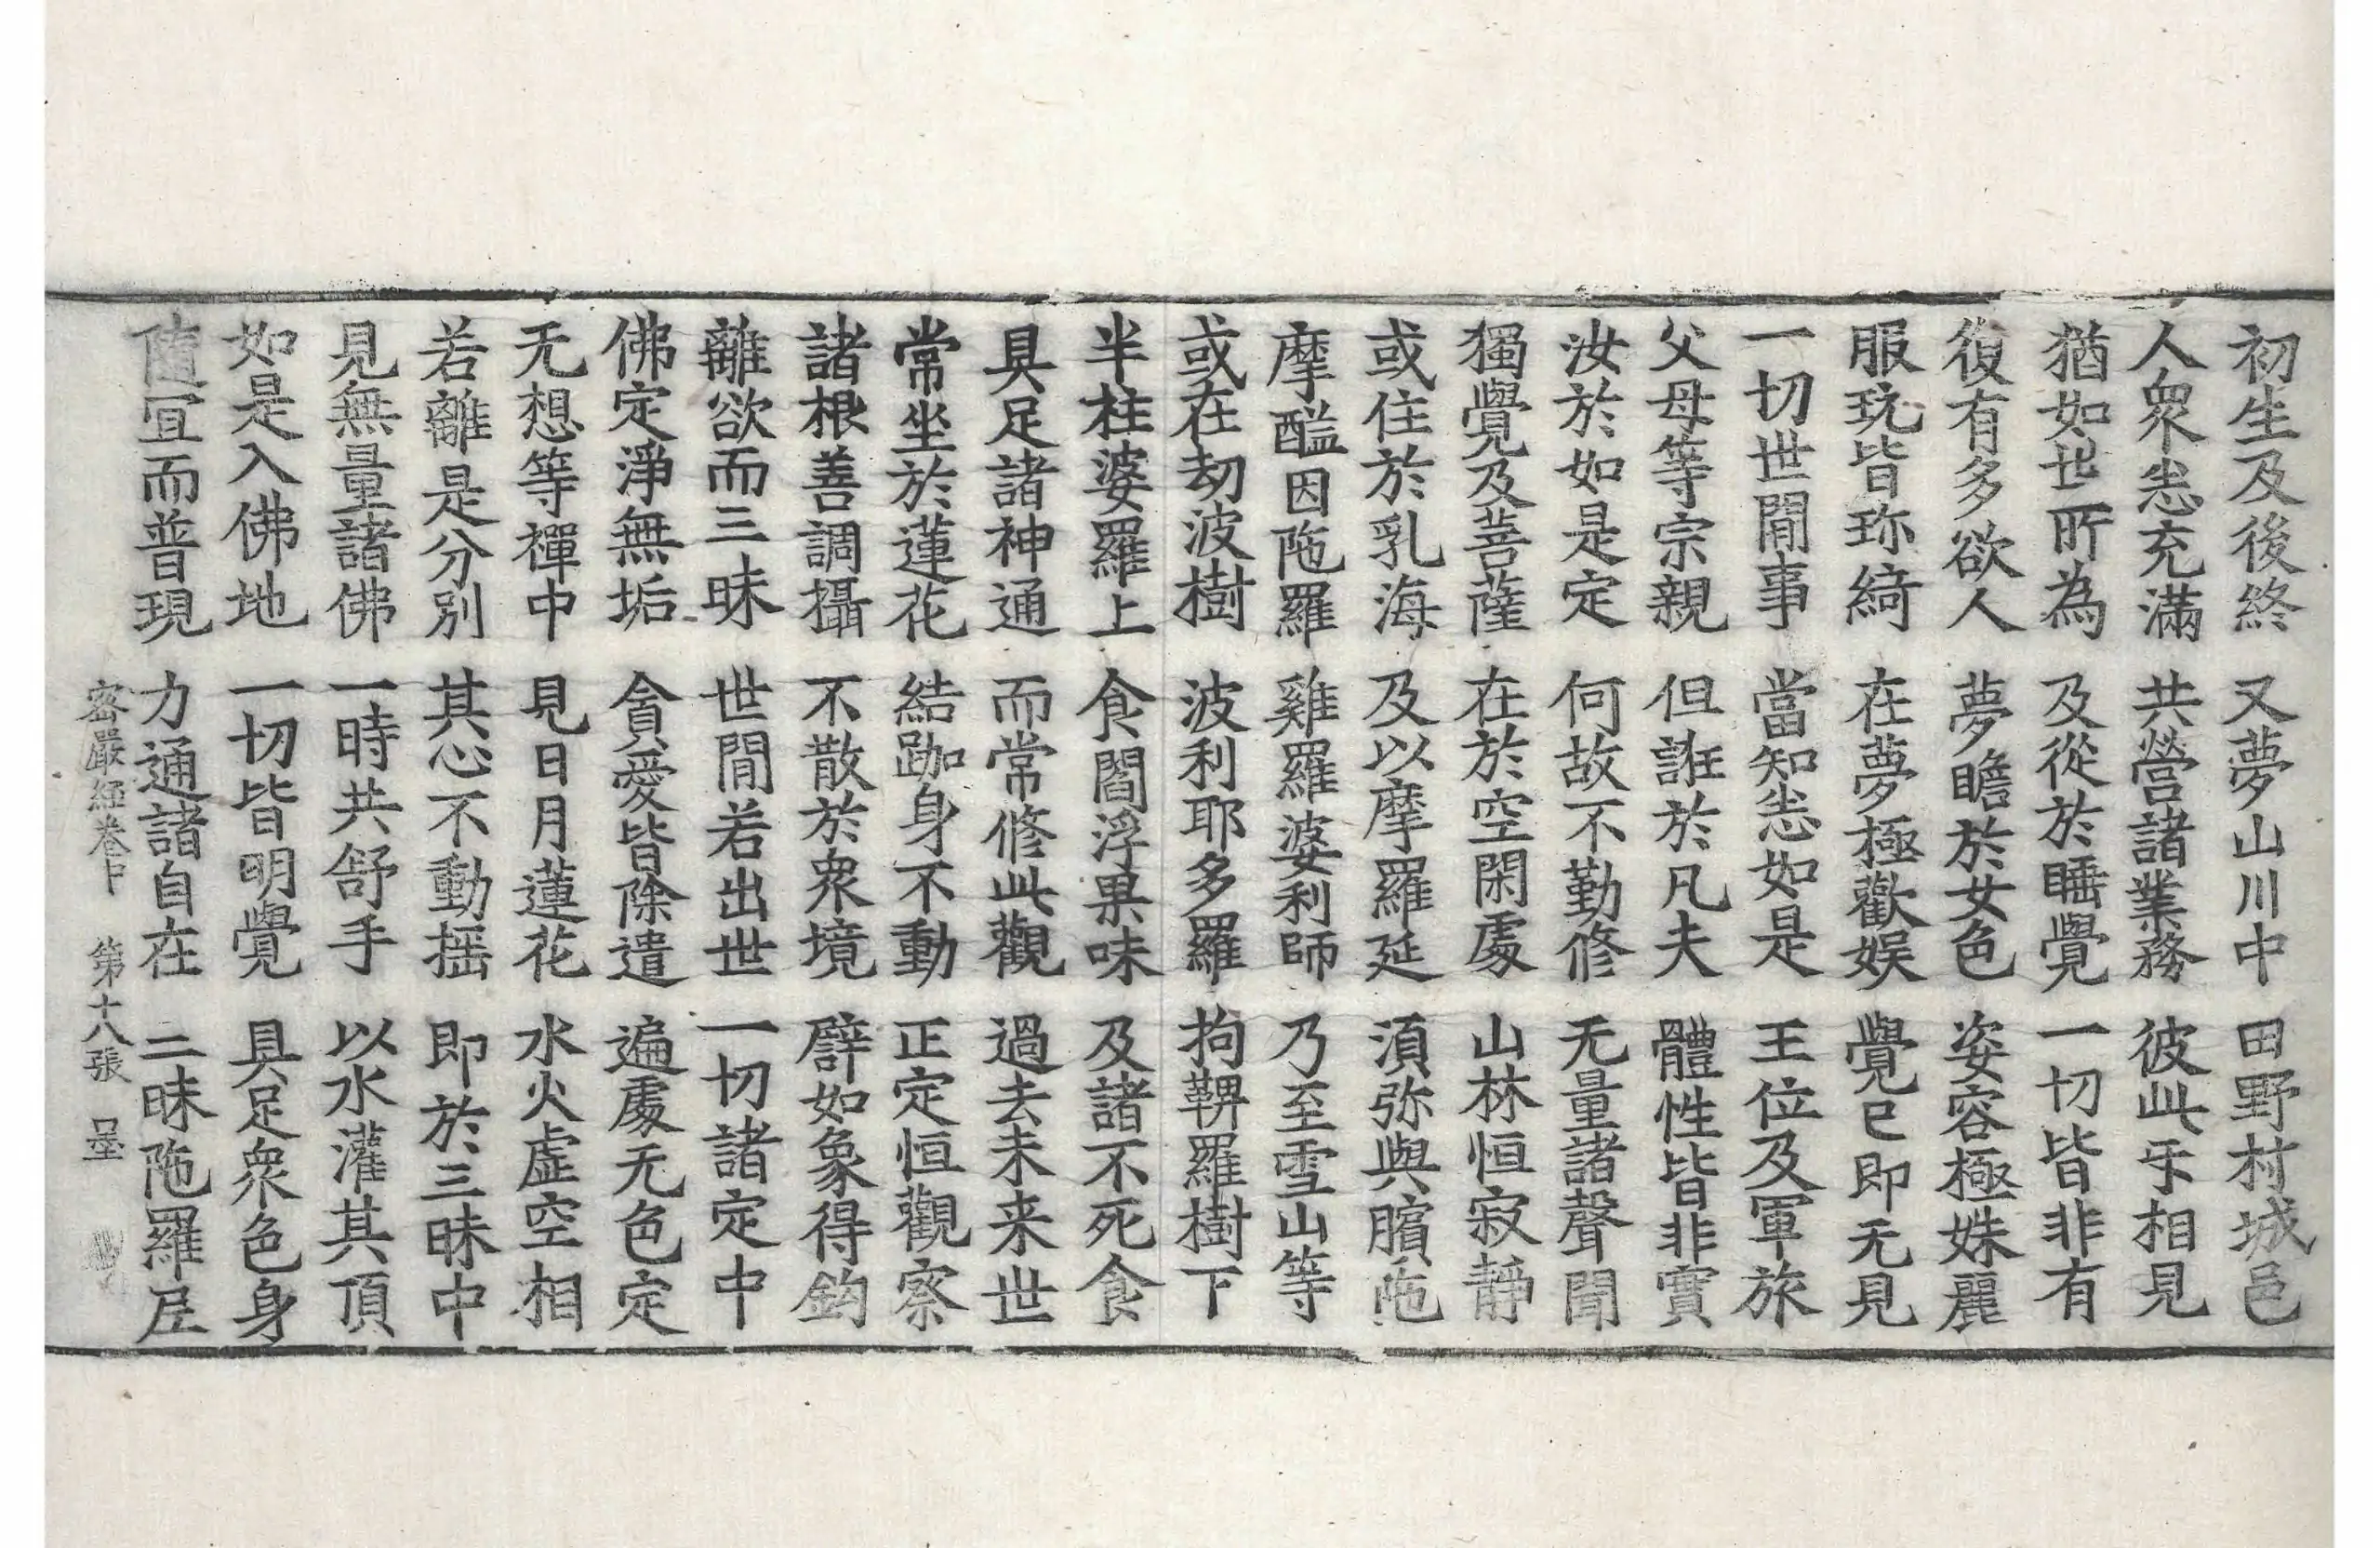 初生及後終 又夢山川中 田野村城邑
人衆恙充滿 共營諸業務 彼此乐相見
猶如世所為 及從於睡覺 一切皆非有
復有多欲人 夢瞻於女色 姿容極姝麗
服玩皆珎綺 在夢極歡娱 覺已即无見
一切世間事 當知恙如是 王位及軍旅
父母等宗親 但誑於凡夫 體性皆非實
汝於如是定 何故不勤修 无量諸聲聞
獨覺及菩薩 在於空閑處 山林恒寂靜
或住於乳海 及以摩羅延 湏弥與臏陁
摩醯因陁羅 雞羅婆利師 乃至雪山等
或在劫波樹 波利耶多羅 拘鞞羅樹下
半柱婆羅上 食閻浮果味 及諸不死食
具足諸神通 而常修此觀 過去未来世
常坐於蓮花 結跏身不動 正定恒觀察
諸根善調攝 不散於衆境 譬如象得鈎
離欲而三昧 世間若出世 一切諸定中
佛定淨無垢 貪愛皆除遣 遍處无色定
无想等禪中 見日月蓮花 水火虚空相
若離是分別 其心不動揺 即於三昧中
見無量諸佛 一時共舒手 以水灌其頂
如是入佛地 一切皆明覺 具足衆色身
随宜而普現 力通諸自在 三昧陁羅尼
密嚴經卷中 第十八張 量